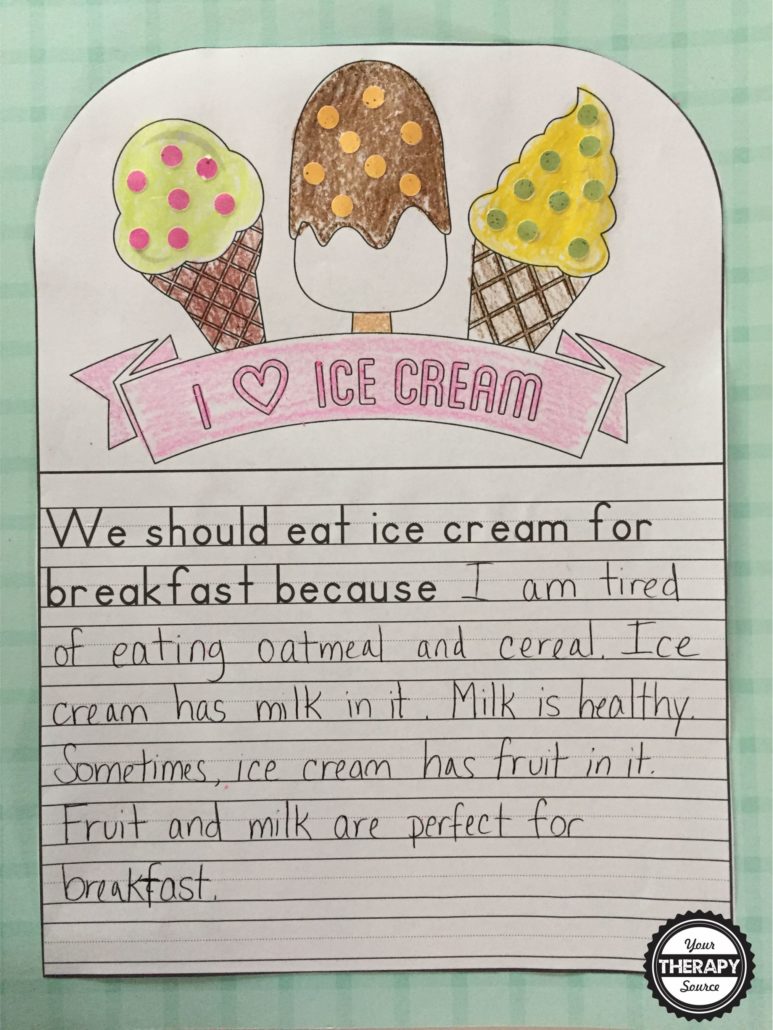 I ♡ ICE CREAM
We should eat ice cream for
breakfast because I am tired
of eating oatmeal and cereal. Ice
cream has milk in it. Milk is healthy.
Sometimes, ice cream has fruit in it.
Fruit and milk are perfect for
breakfast.
Your
THERAPY
Source